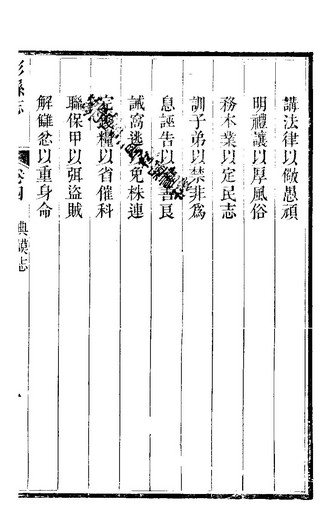 講法律以儆愚頑
明禮讓以厚風俗
務本業以定民志
訓子弟以禁非爲
息誣告以善良
誡窩逃以免株連
糧以省催科
聯保甲以弭盜賊
解讎忿以重身命
縣志 卷四 典謨志